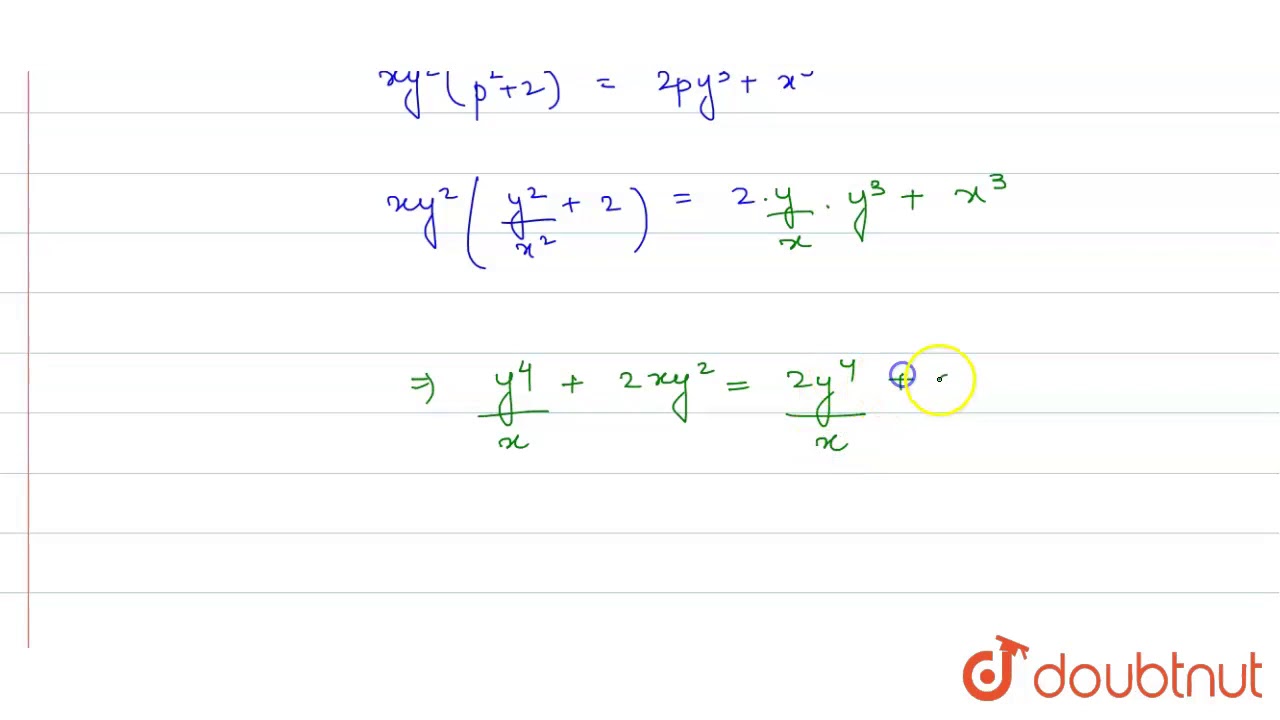 xy²(p²+2) = 2py³ + x³
xy²(y²/x² + 2) = 2 · y/x · y³ + x³
⇒ y⁴/x + 2xy² = 2y⁴/x +
doubtnut